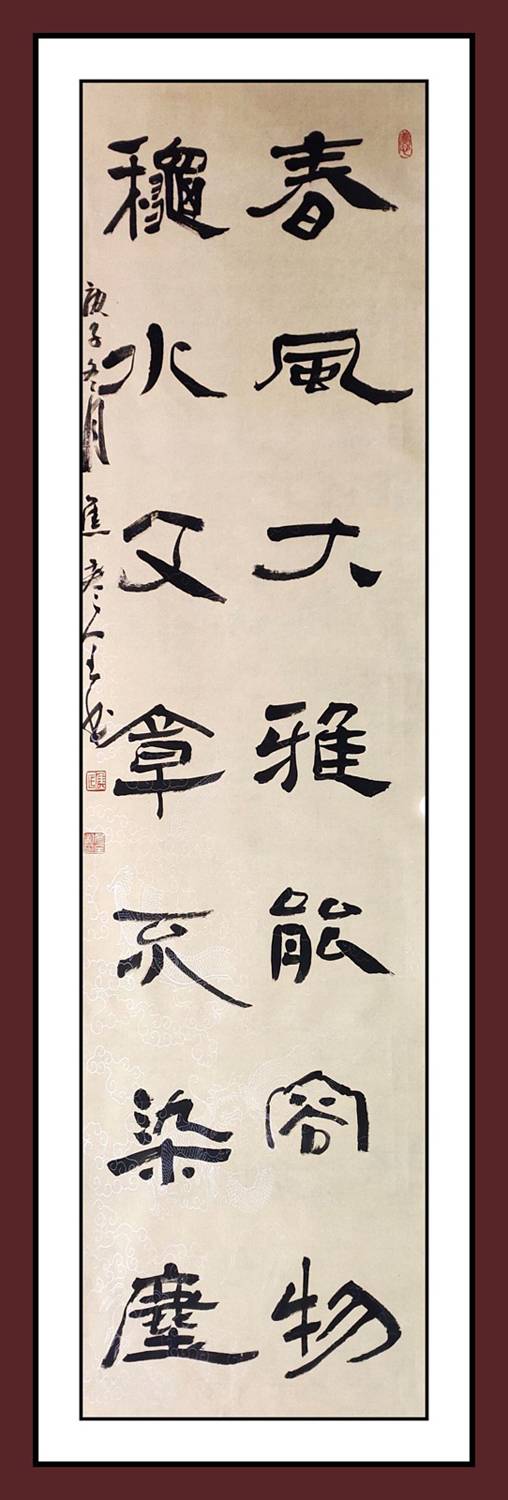 春風大雅能容物
龝水文章不染塵
庚子冬月 焦 全书